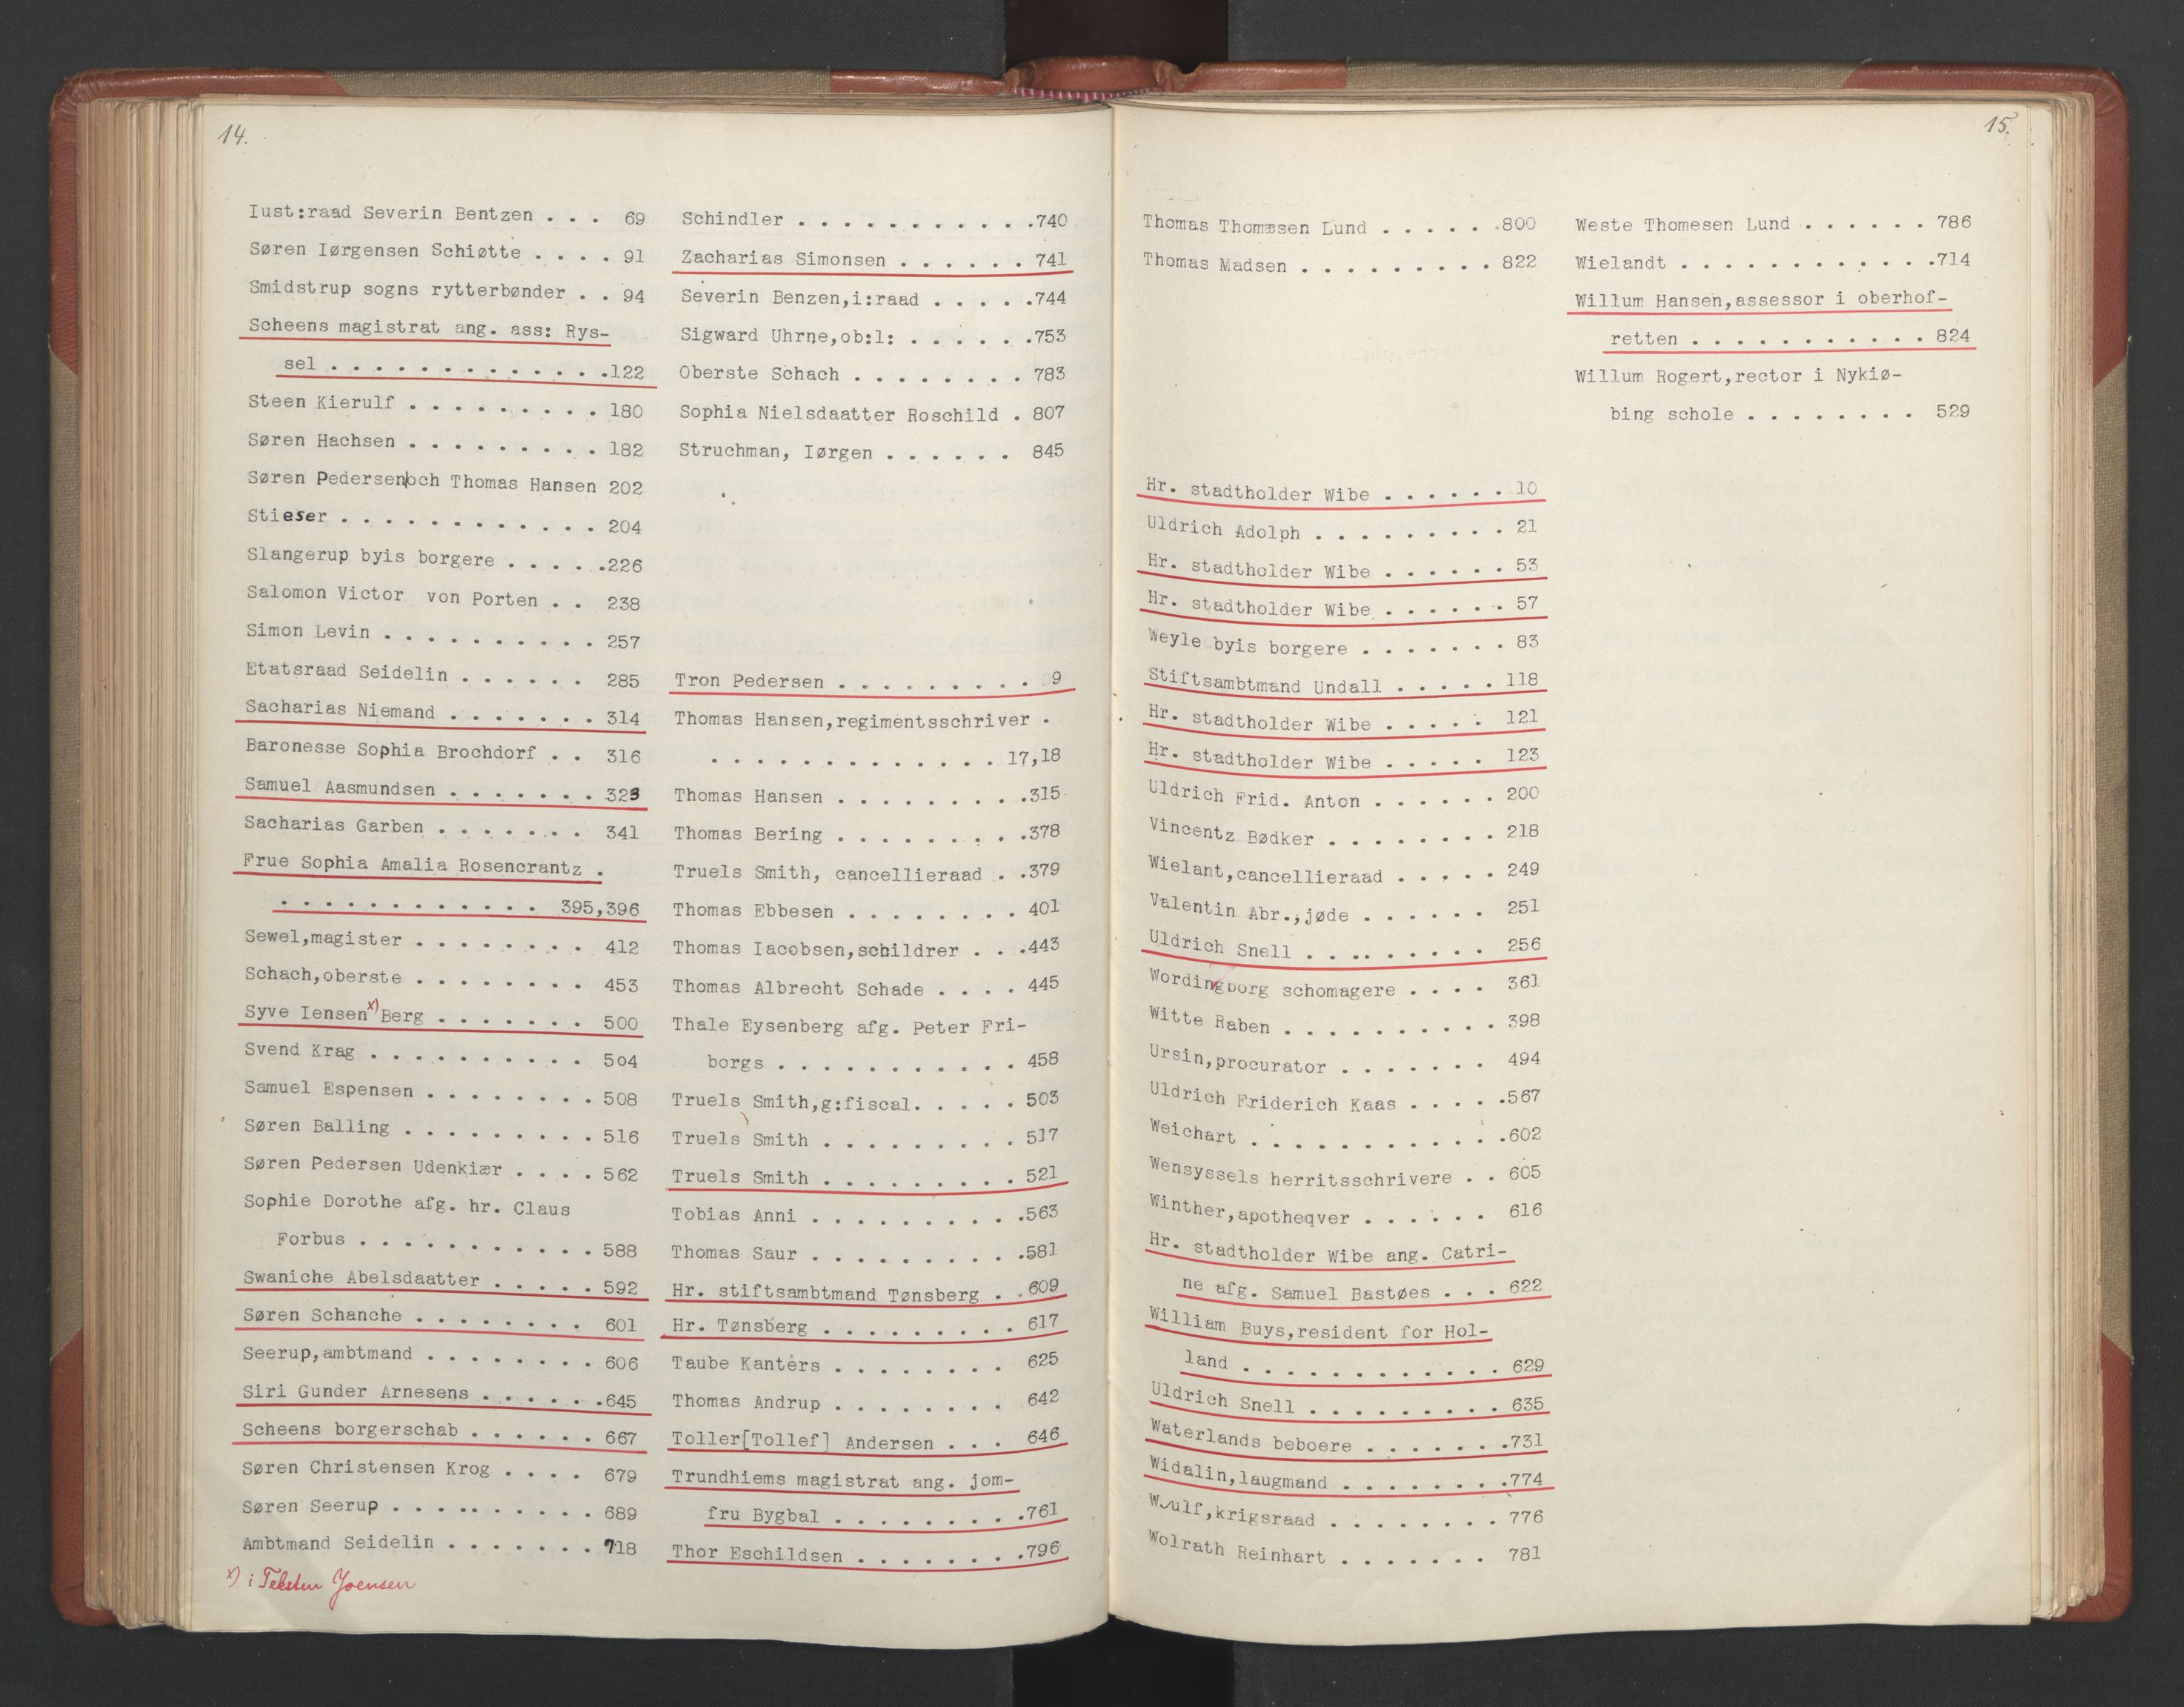 14.
Iust:raad Severin Bentzen . . . 69
Søren Iørgensen Schiøtte . . . . 91
Smidstrup sogns rytterbønder . . 94
Scheens magistrat ang. ass: Rys-
sel . . . . . . . . . . . . .122
Steen Kierulf . . . . . . . . . 180
Søren Hachsen . . . . . . . . . 182
Søren Pedersen/och Thomas Hansen 202
Stieser . . . . . . . . . . . . 204
Slangerup byis borgere . . . . .226
Salomon Victor von Porten . . 238
Simon Levin . . . . . . . . . . 257
Etatsraad Seidelin . . . . . . 285
Sacharias Niemand . . . . . . . 314
Baronesse Sophia Brochdorf . . 316
Samuel Aasmundsen . . . . . . . 323
Sacharias Garben . . . . . . . 341
Frue Sophia Amalia Rosencrantz .
. . . . . . . . . . . . 395,396
Sewel,magister . . . . . . . . 412
Schach,oberste . . . . . . . . 453
Syve Iensen x) Berg . . . . . . . 500
Svend Krag . . . . . . . . . . 504
Samuel Espensen . . . . . . . . 508
Søren Balling . . . . . . . . . 516
Søren Pedersen Udenkiær . . . . 562
Sophie Dorothe afg. hr. Claus
Forbus . . . . . . . . . . . 588
Swaniche Abelsdaatter . . . . . 592
Søren Schanche . . . . . . . . 601
Seerup,ambtmand . . . . . . . . 606
Siri Gunder Arnesens . . . . . .645
Scheens borgerschab . . . . . . 667
Søren Christensen Krog . . . . 679
Søren Seerup . . . . . . . . . . 689
Ambtmand Seidelin . . . . . . . 718
x) i Teksten Joensen
Schindler . . . . . . . . . . .740
Zacharias Simonsen . . . . . . 741
Severin Benzen,i:raad . . . . .744
Sigward Uhrne,ob:l: . . . . . .753
Oberste Schach . . . . . . . . 783
Sophia Nielsdaatter Roschild . 807
Struchman, Iørgen . . . . . . 845
Tron Pedersen . . . . . . . . . 9
Thomas Hansen,regimentsschriver .
. . . . . . . . . . . . . 17,18
Thomas Hansen . . . . . . . . .315
Thomas Bering . . . . . . . . .378
Truels Smith, cancellieraad . .379
Thomas Ebbesen . . . . . . . . 401
Thomas Iacobsen,schildrer . . .443
Thomas Albrecht Schade . . . . 445
Thale Eysenberg afg. Peter Fri-
borgs . . . . . . . . . . . 458
Truels Smith,g:fiscal. . . . . 503
Truels Smith . . . . . . . . . 517
Truels Smith . . . . . . . . . 521
Tobias Anni . . . . . . . . . .563
Thomas Saur . . . . . . . . . .581
Hr. stiftsambtmand Tønsberg . .609
Hr. Tønsberg . . . . . . . . . 617
Taube Kanters . . . . . . . . 625
Thomas Andrup . . . . . . . . 642
Toller[Tollef] Andersen . . . 646
Trundhiems magistrat ang. jom-
fru Bygbal . . . . . . . . .761
Thor Eschildsen . . . . . . . .796
15.
Thomas Thomæsen Lund . . . . . .800
Thomas Madsen . . . . . . . . . 822
Hr. stadtholder Wibe . . . . . . 10
Uldrich Adolph . . . . . . . . . 21
Hr. stadtholder Wibe . . . . . . 53
Hr. stadtholder Wibe . . . . . . 57
Weyle byis borgere . . . . . . . 83
Stiftsambtmand Undall . . . . . 118
Hr. stadtholder Wibe . . . . . 121
Hr. stadtholder Wibe . . . . . 123
Uldrich Frid. Anton . . . . . . 200
Vincentz Bødker . . . . . . . . 218
Wielant,cancellieraad . . . . . 249
Valentin Abr.,jøde . . . . . . 251
Uldrich Snell . . . . . . . . . 256
Wordingborg schomagere . . . . 361
Witte Raben . . . . . . . . . . 398
Ursin,procurator . . . . . . . 494
Uldrich Friderich Kaas . . . . .567
Weichart . . . . . . . . . . . .602
Wensyssels herritsschrivere . . 605
Winther,apotheqver . . . . . . 616
Hr. stadtholder Wibe ang. Catri-
ne afg. Samuel Bastøes . . . 622
William Buys,resident for Hol-
land . . . . . . . . . . . . 629
Uldrich Snell . . . . . . . . . 635
Waterlands beboere . . . . . . .731
Widalin,laugmand . . . . . . . .774
Wulf,krigsraad . . . . . . . . 776
Wolrath Reinhart . . . . . . . 781
Weste Thomesen Lund . . . . . . 786
Wielandt . . . . . . . . . . . .714
Willum Hansen,assessor i oberhof-
retten . . . . . . . . . . . 824
Willum Rogert,rector i Nykiø-
bing schole . . . . . . . . 529